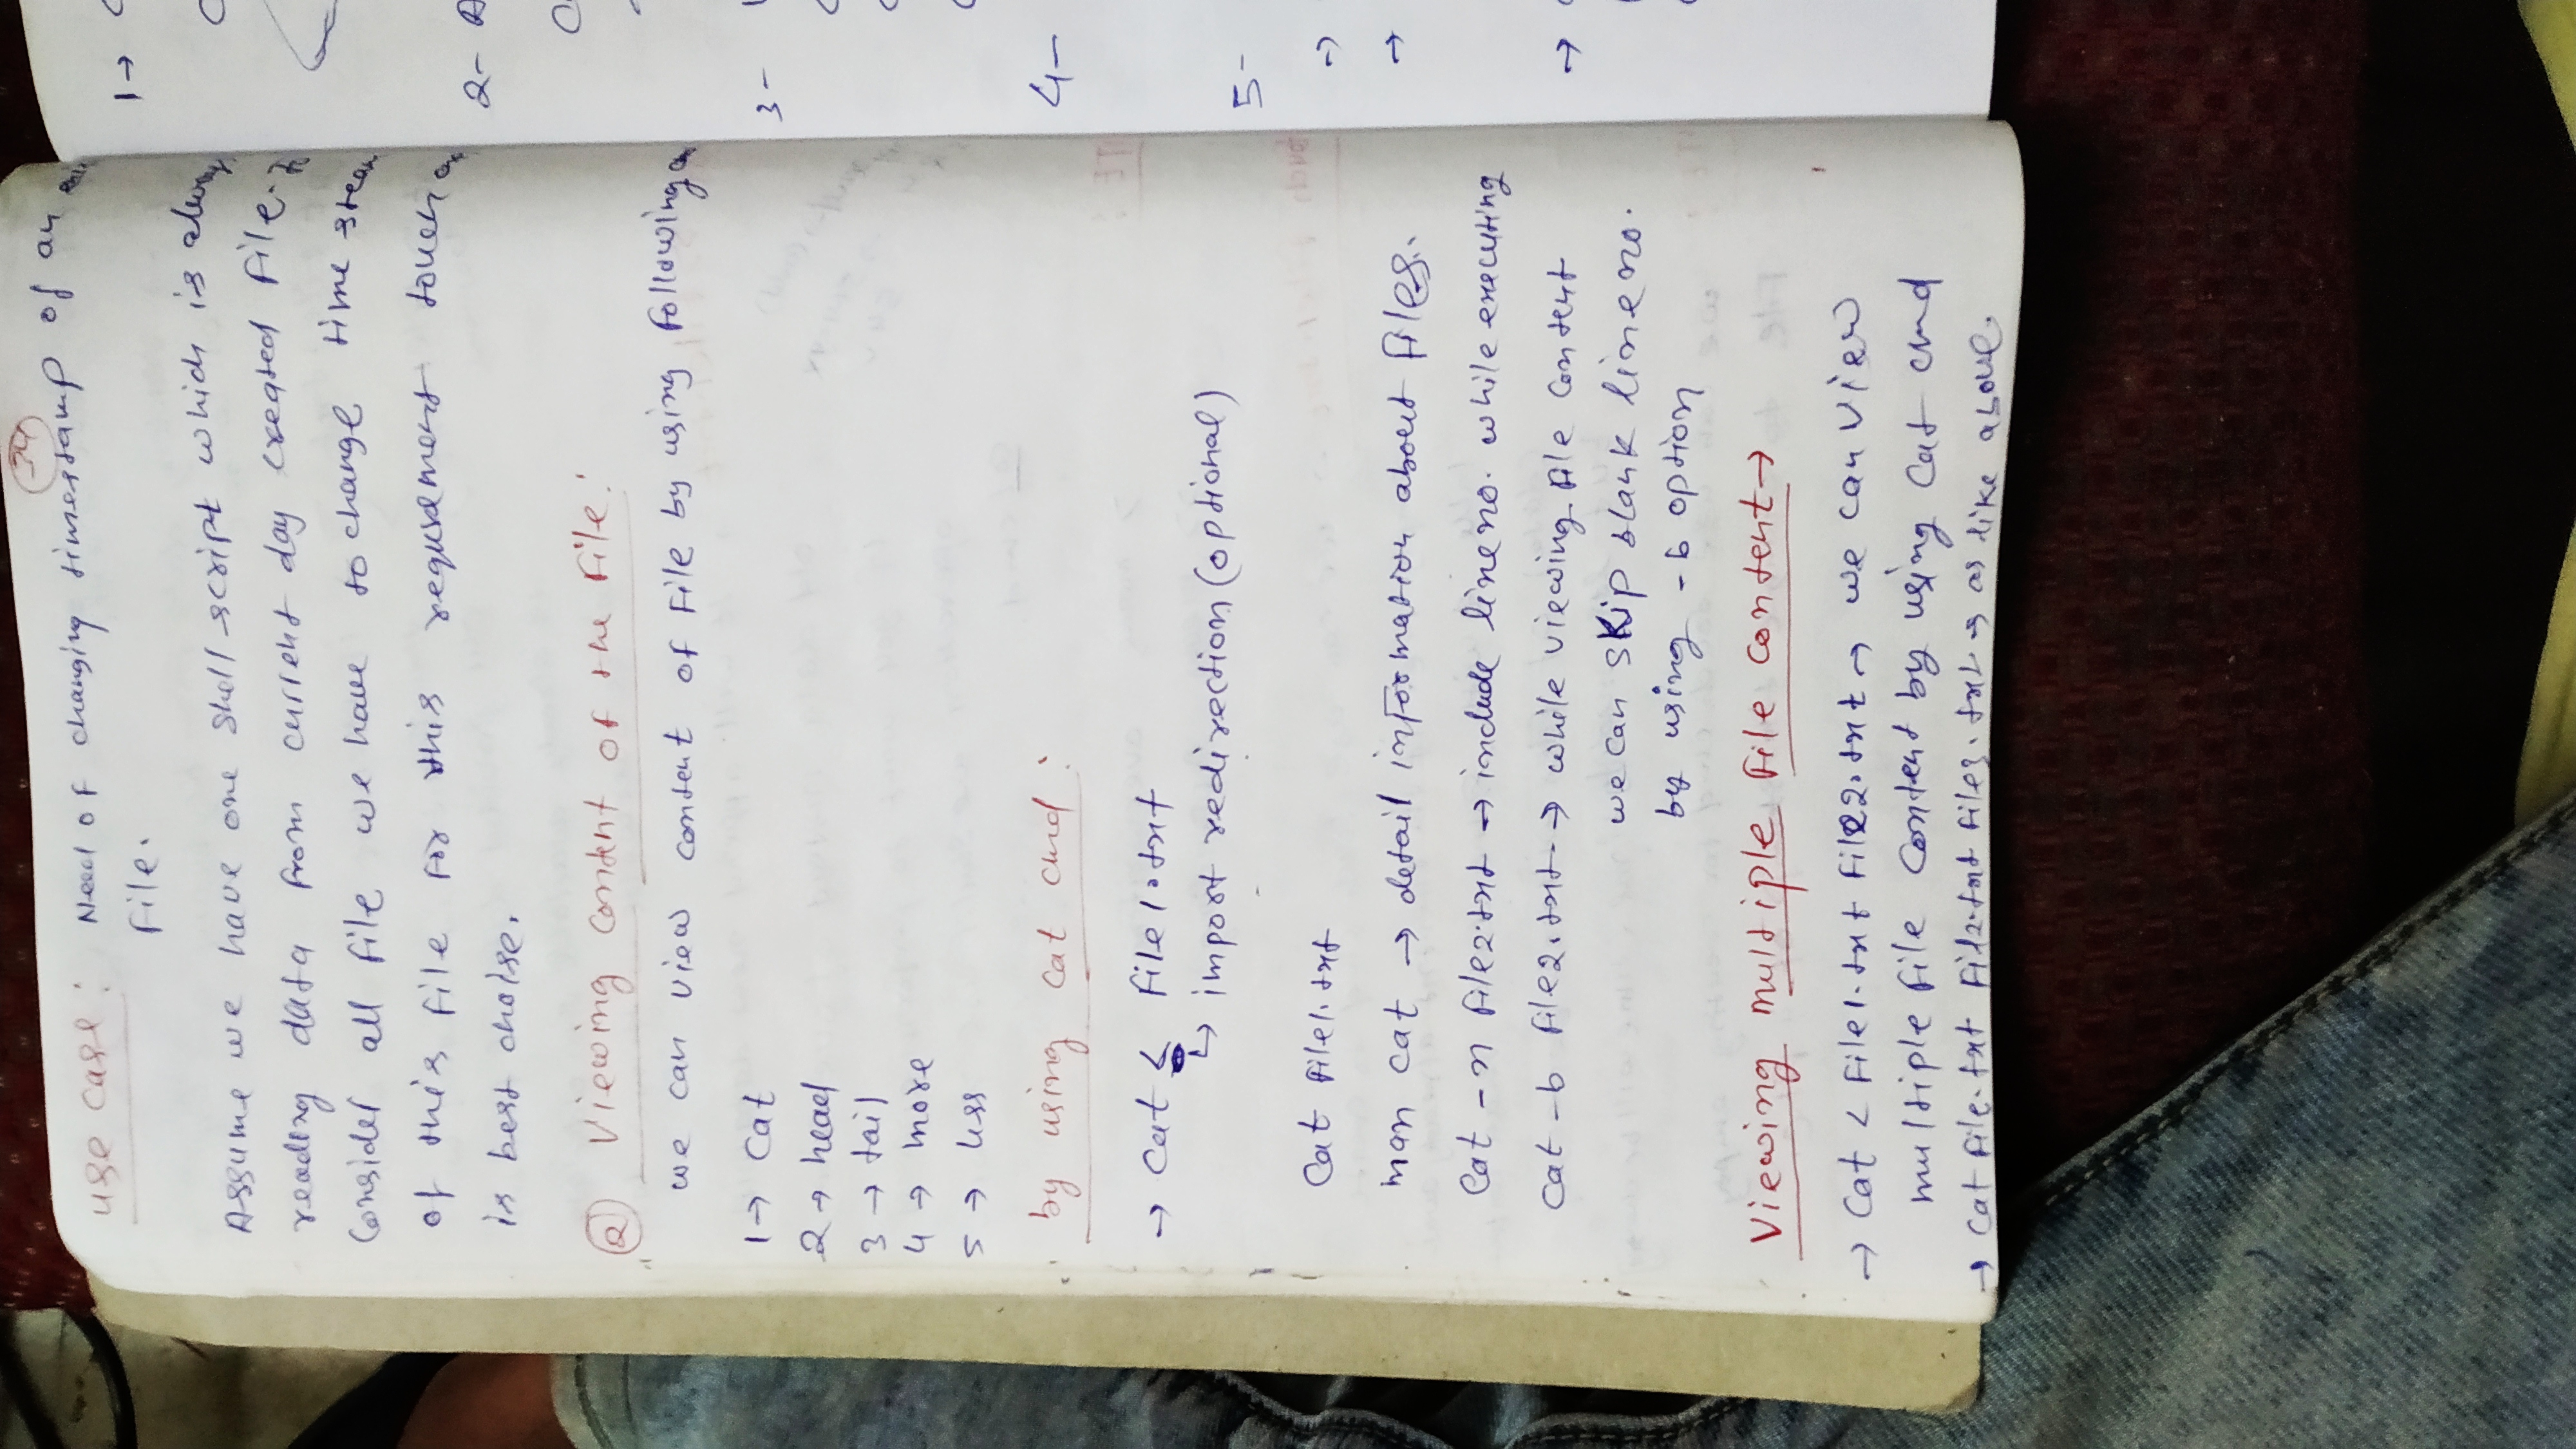 34
use case: Need of changing timestamp of an
file.
Assume we have one shell script which is always
reading data from current day created file. To
consider all file we have to change time stam
of this file for this requirement touch
is best choise.
2 Viewing content of the file:
we can view content of file by using following
1→ cat
2→ head
3→ tail
4→ more
5→ less
by using cat cmd:
→ cat < file1.txt
↳ import redirection (optional)
cat file1.txt
man cat → detail information about files.
cat -n file2.txt → include line no. while executing
cat -b file2.txt. → while viewing file content
we can skip blank line no.
by using -b option
Viewing multiple file content→
→ cat < file1.txt file2.txt → we can view
multiple file content by using cat cmd
→ cat file.txt file2.txt file3.txt → as like above.
1→
2-
3-
4-
5-
→
→
→